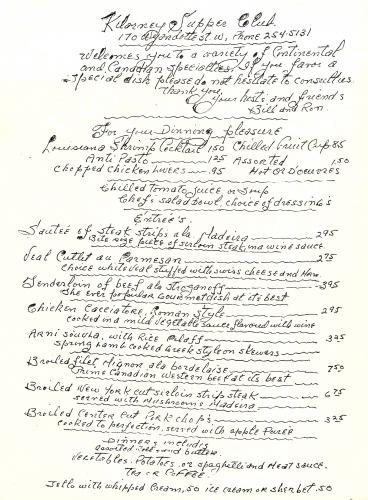 Kilarney Supper Club
170 Wyandotte st W, Phone 254-5131
Welcomes you to a variety of Continental
and Canadian specialties. If you favor a
special dish please do not hesitate to consult us.
Thank you,
Your hosts and friends
Bill and Ron.
For your Dinning pleasure
Louisiana Shrimp Cocktail 150 Chilled Fruit Cup 85
Anti Pasto 125 Assorted 150
Chopped Chicken Livers .95 Hot OR D'oeuvres
Chilled Tomato Juice or Soup
Chef's salad bowl, choice of dressing's
Entrée's.
Sautée of steak strips ala Madeira 295
Bite size piece of sirloin steak, in a wine sauce
Veal Cutlet au Parmesan 275
Choice white veal stuffed with swiss cheese and Ham
Tenderloin of beef ala stroganoff 395
The ever popular Gourmet dish at its best
Chicken Cacciatore, Roman Style 295
cooked in a mild vegetable sauce, flavored with wine
Arni Souvla, with Rice Pilaff 325
spring lamb cooked Greek style on skewers
Broiled filet Mignon ala bordelaise 750
Prime Canadian Western beef at its best
Broiled New York cut sirloin strip steak 675
served with Mushrooms Madeira
Broiled Center Cut Pork chop's 325
cooked to perfection, served with apple Purée
Dinners includes
assorted rolls and butter.
Vegetables. Potatoes. or spaghetti and Meat sauce.
Tea or Coffee.
Jello with whipped Cream, 50 ice cream or sherbet .50